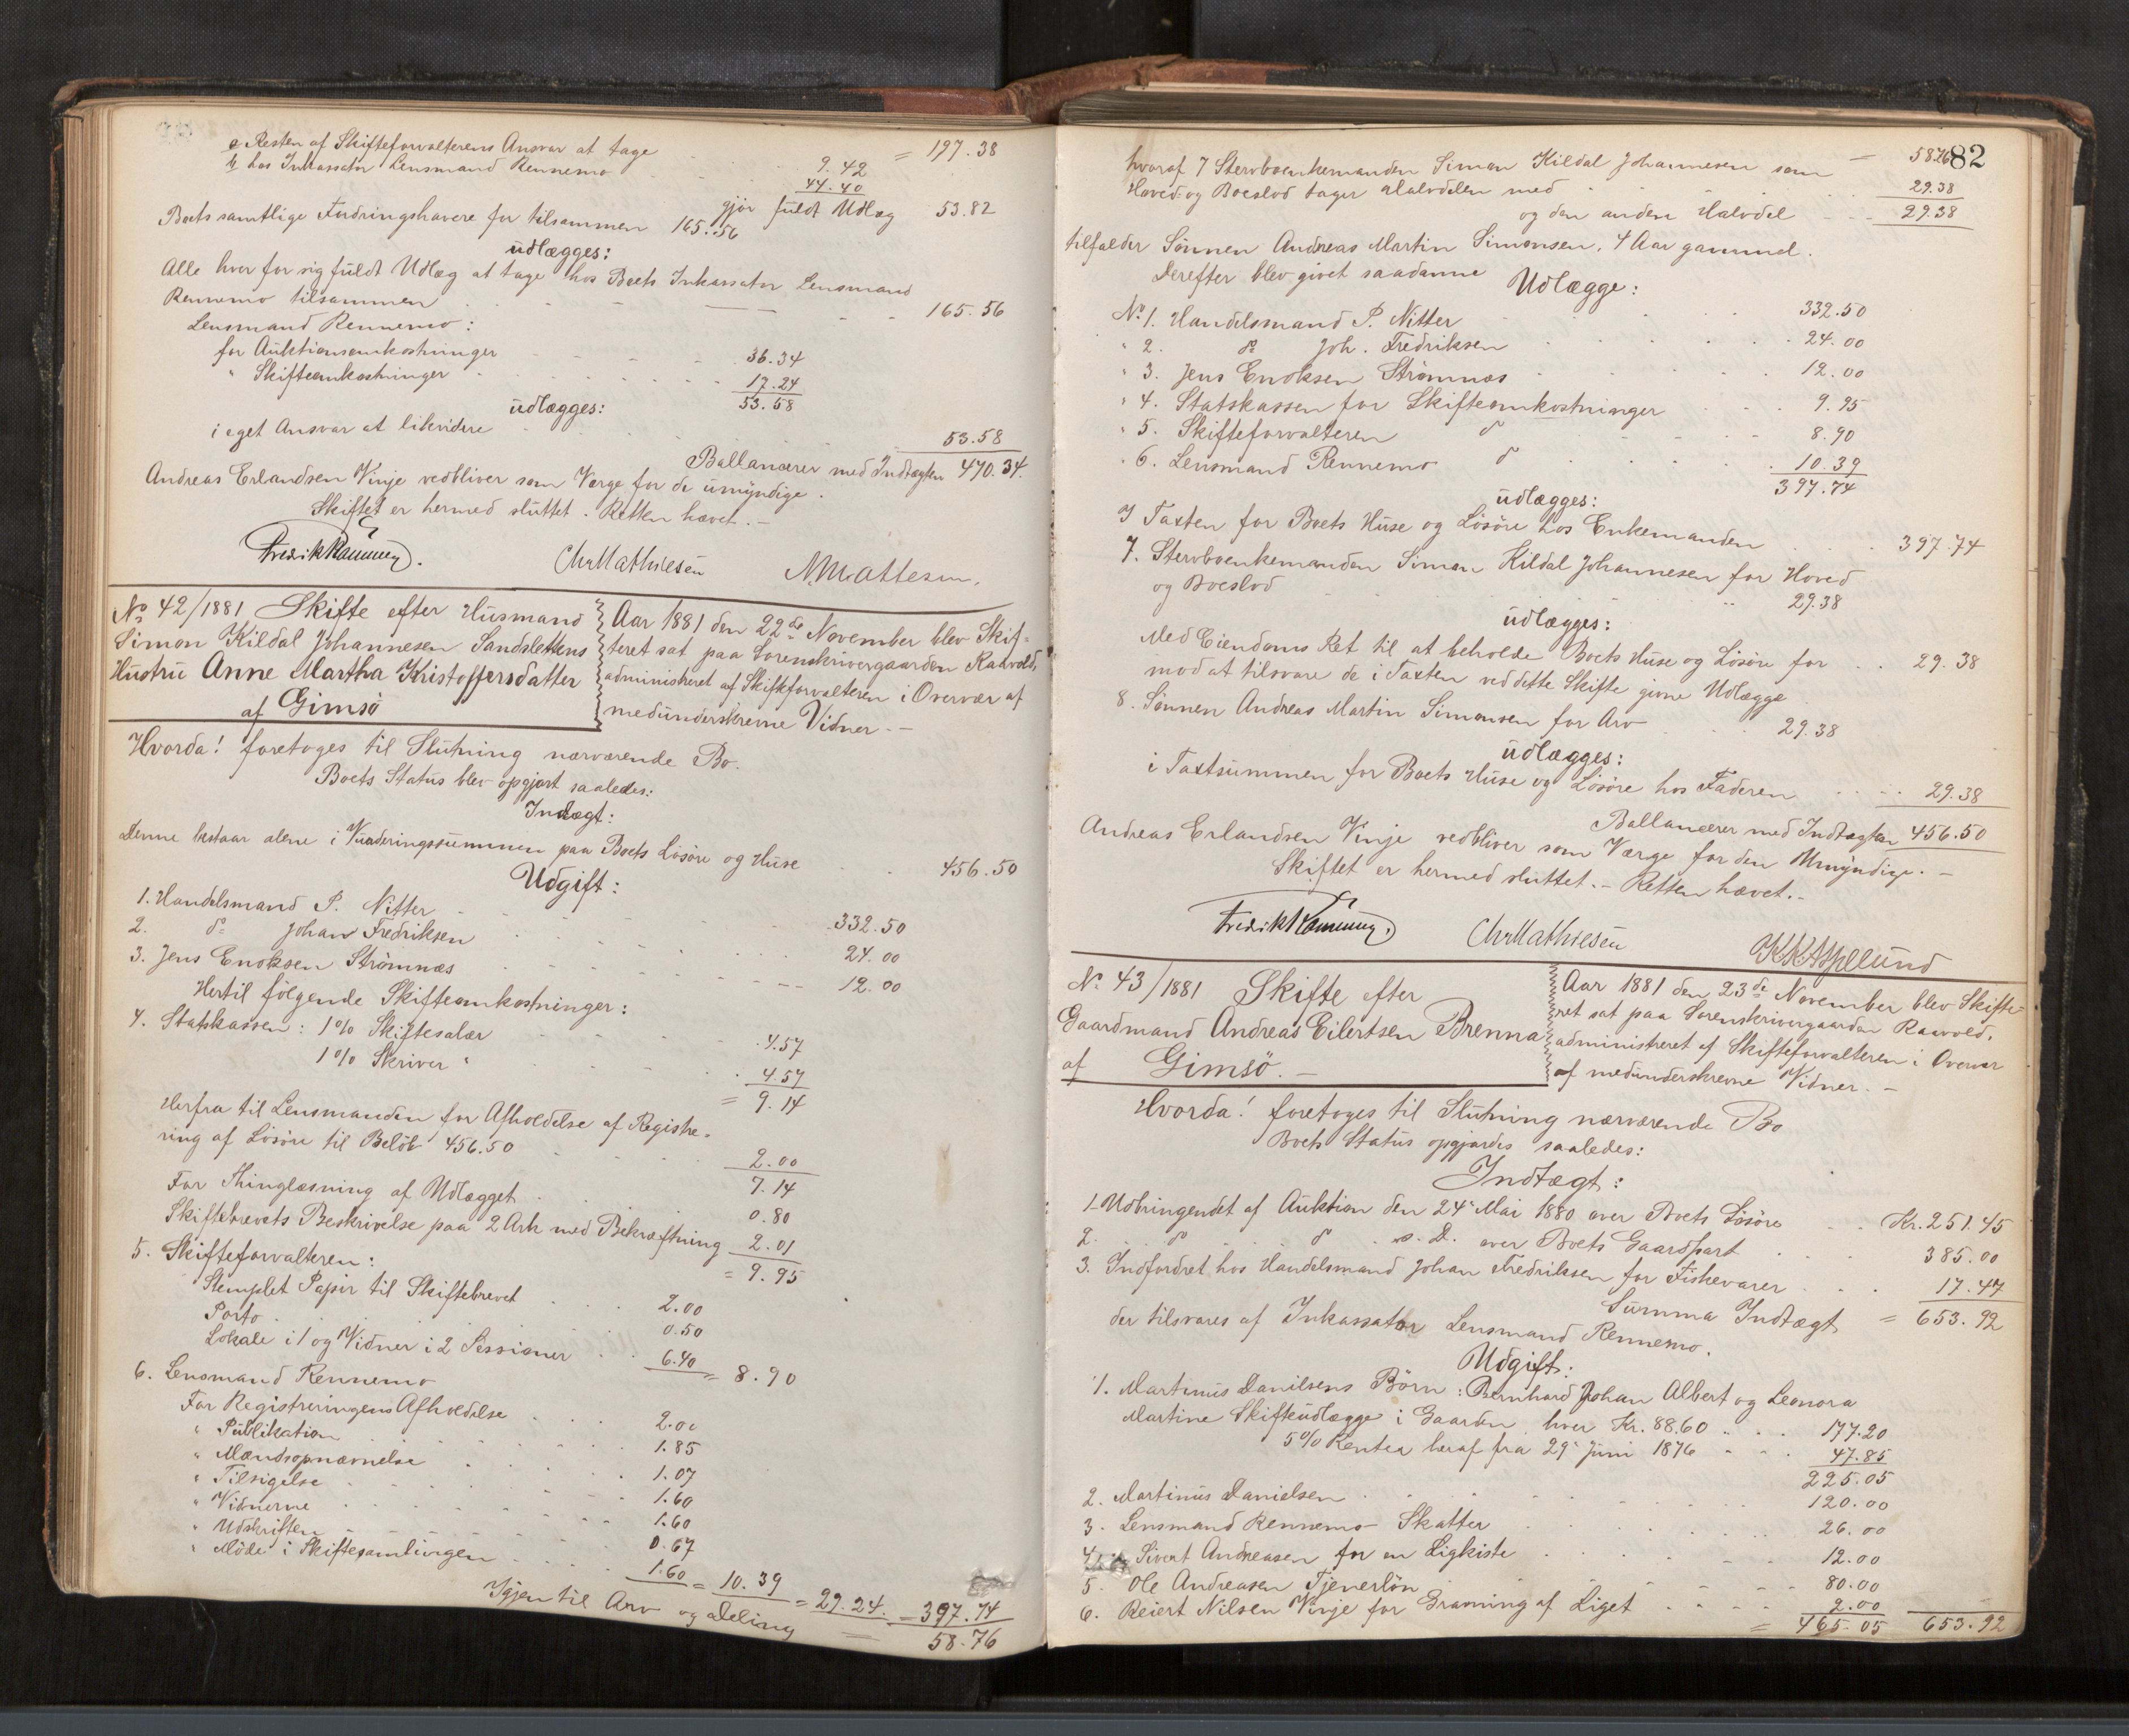 a Resten af Skifteforvalterens Ansvar at tage 9.42 = 197.38
b hos Inkassator Lensmand Rennemo 44.40
gjør fuldt Udlæg 53.82
Boets samtlige Fordringshavere for tilsammen 165.56
udlægges:
Alle hver for sig fuldt Udlæg at tage hos Boets Inkassator Lensmand
Rennemo tilsammen 165.56
Lensmand Rennemo:
for Auktionsomkostninger 36.34
" Skifteomkostninger 17.24
53.58
udlægges:
i eget Ansvar at likvidere 53.58
Ballancerer med Indtægten 470.34.
Andreas Erlandsen Vinje vedbliver som Værge for de umyndige.
Skiftet er hermed sluttet. Retten hævet.-
Chr Mathiesen
No 42/1881 Skifte efter Husmand
Simon Kildal Johannesen Sandslettens
Hustru Anne Martha Kristoffersdatter
af Gimsö
Aar 1881 den 22de November blev Skif-
teret sat paa Sorenskrivergaarden Raavold,
administreret af Skifteforvalteren i Overvær af
medunderskrevne Vidner.-
Hvorda! foretoges til Slutning nærværende Bo.
Boets Status blev opgjort saaledes:
Indtægt:
Denne bestaar alene i Vurderingssummen paa Boets Lösöre og Huse 456.50
Udgift:
1. Handelsmand P. Nitter 332.50
2. do Johan Fredriksen 24.00
3. Jens Enoksen Strömnæs 12.00
Hertil følgende Skifteomkostninger:
4. Statskassen: 1% Skiftesalær 4.57
1% Skriver " 4.57
= 9.14
Herfra til Lensmanden for Afholdelse af Registre-
ring af Lösöre til Beløb 456.50 2.00
7.14
For Thinglæsning af Udlægget 0.80
Skiftebrevets Beskrivelse paa 2 Ark med Bekræftning 2.01
= 9.95
5. Skifteforvalteren:
Stemplet Papir til Skiftebrevet 2.00
Porto 0.50
Lokale i 1 og Vidner i 2 Sessioner 6.40 = 8.90
6. Lensmand Rennemo
For Registreringens Afholdelse 2.00
" Publikation 1.85
" Mændsopnævnelse 1.07
" Tilsigelse 1.60
" Vidnerne 1.60
" Udskriften 0.67
" Möde i Skiftesamlingen 1.60 = 10.39 = 29.24. = 397.74
Igjen til Arv og Deling = 58.76
82
hvoraf 7 Stervboenkemanden Simon Kildal Johannesen som = 58.76
Hoved- og Boeslod tager Halvdelen med 29.38
og den anden Halvdel 29.38
tilfalder Sønnen Andreas Martin Simonsen, 4 Aar gammel.
Derefter blev givet saadanne
Udlægge:
No 1. Handelsmand P. Nitter 332.50
" 2. do Joh. Fredriksen 24.00
" 3. Jens Enoksen Strömnæs 12.00
" 4. Statskassen for Skifteomkostninger 9.95
" 5. Skifteforvalteren do 8.90
" 6. Lensmand Rennemo do 10.39
397.74
udlægges:
I Taxten for Boets Huse og Lösöre hos Enkemanden 397.74
7. Stervboenkemanden Simon Kildal Johannesen for Hoved
og Boeslod 29.38
udlægges:
Med Eiendoms Ret til at beholde Boets Huse og Lösöre for 29.38
mod at tilsvare de i Taxten ved dette Skifte givne Udlægge
8. Sønnen Andreas Martin Simonsen for Arv 29.38
udlægges:
i Taxtsummen for Boets Huse og Lösöre hos Faderen 29.38
Ballancerer med Indtægten 456.50
Andreas Erlandsen Vinje vedbliver som Værge for den Umyndige.-
Skiftet er hermed sluttet.- Retten hævet.-
Chr Mathiesen
No 43/1881 Skifte efter
Gaardmand Andreas Eilertsen Brenna
af Gimsö.-
Aar 1881 den 23de November blev Skifte-
ret sat paa Sorenskrivergaarden Raavold,
administreret af Skifteforvalteren i Overvær
af medunderskrevne Vidner.-
Hvorda! foretoges til Slutning nærværende Bo
Boets Status opgjordes saaledes:
Indtægt:
1. Udbringendet af Auktion den 24' Mai 1880 over Boets Lösöre Kr. 251.45
2. do do s. D. over Boets Gaardpart 385.00
3. Indfordret hos Handelsmand Johan Fredriksen for Fiskevarer 17.47
Summa Indtægt = 653.92
der tilsvares af Inkassator Lensmand Rennemo.
Udgift:
1. Martinus Danielsens Börn: Bernhard Johan Albert og Leonora
Martine Skifteudlægge i Gaarden hver Kr. 88.60 177.20
5% Renter heraf fra 29' Juni 1876 47.85
225.05
2. Martinus Danielsen 120.00
3. Lensmand Rennemo Skatter 26.00
4. Sivert Andreasen for en Ligkiste 12.00
5. Ole Andreasen Tjenerlön 80.00
6. Reiert Nilsen Vinje for Gravning af Liget 2.00
= 465.05 653.92